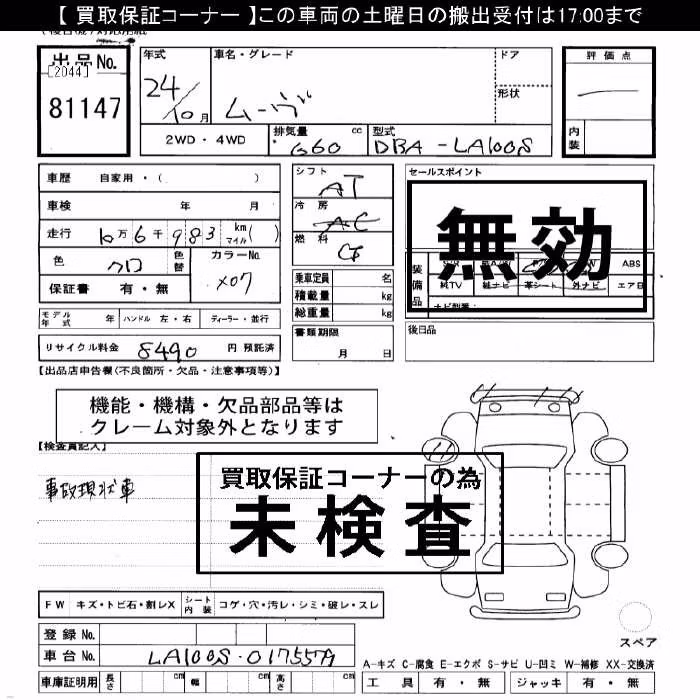 【 買取保証コーナー 】この車両の土曜日の搬出受付は17:00まで
出品No.
[2044]
81147
年式
24/10月
車名・グレード
ムーヴ
ドア
形状
評価点
内装
2WD・4WD
排気量 cc
660
型式
DBA-LA100S
車歴 自家用・( )
車検 年 月
走行 10万6千983 km マイル( )
色 クロ 色替
カラーNo. X07
保証書 有・無
シフト AT
冷房 AC
燃料
乗車定員 名
積載量 kg
総重量 kg
書類期限
月 日
セールスポイント
無効
装備品
ABS
純TV 純ナビ 革シート 外ナビ エアB
ナビ型番:
後日品
モデル年式 年 ハンドル 左・右 ディーラー・並行
リサイクル料金 8490 円 預託済
【出品店申告欄(不良箇所・欠品・注意事項等)】
機能・機構・欠品部品等は
クレーム対象外となります
【検査員記入】
事故現状車
買取保証コーナーの為
未検査
FW キズ・トビ石・割レX シート内装 コゲ・穴・汚レ・シミ・破レ・スレ
登録No.
車台No. LA100S-0175579
車庫証明用 長さ cm 幅 cm 高さ cm
スペア
A-キズ C-腐食 E-エクボ S-サビ U-凹ミ W-補修 XX-交換済
工具 有・無 ジャッキ 有・無